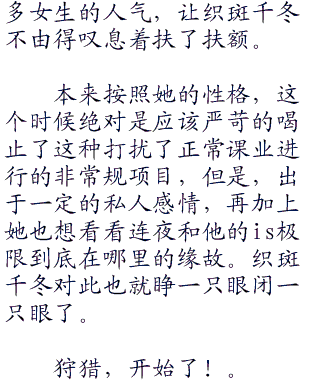 多女生的人气，让织斑千冬
不由得叹息着扶了扶额。
本来按照她的性格，这
个时候绝对是应该严苛的喝
止了这种打扰了正常课业进
行的非常规项目，但是，出
于一定的私人感情，再加上
她也想看看连夜和他的is极
限到底在哪里的缘故。织斑
千冬对此也就睁一只眼闭一
只眼了。
狩猎，开始了！。